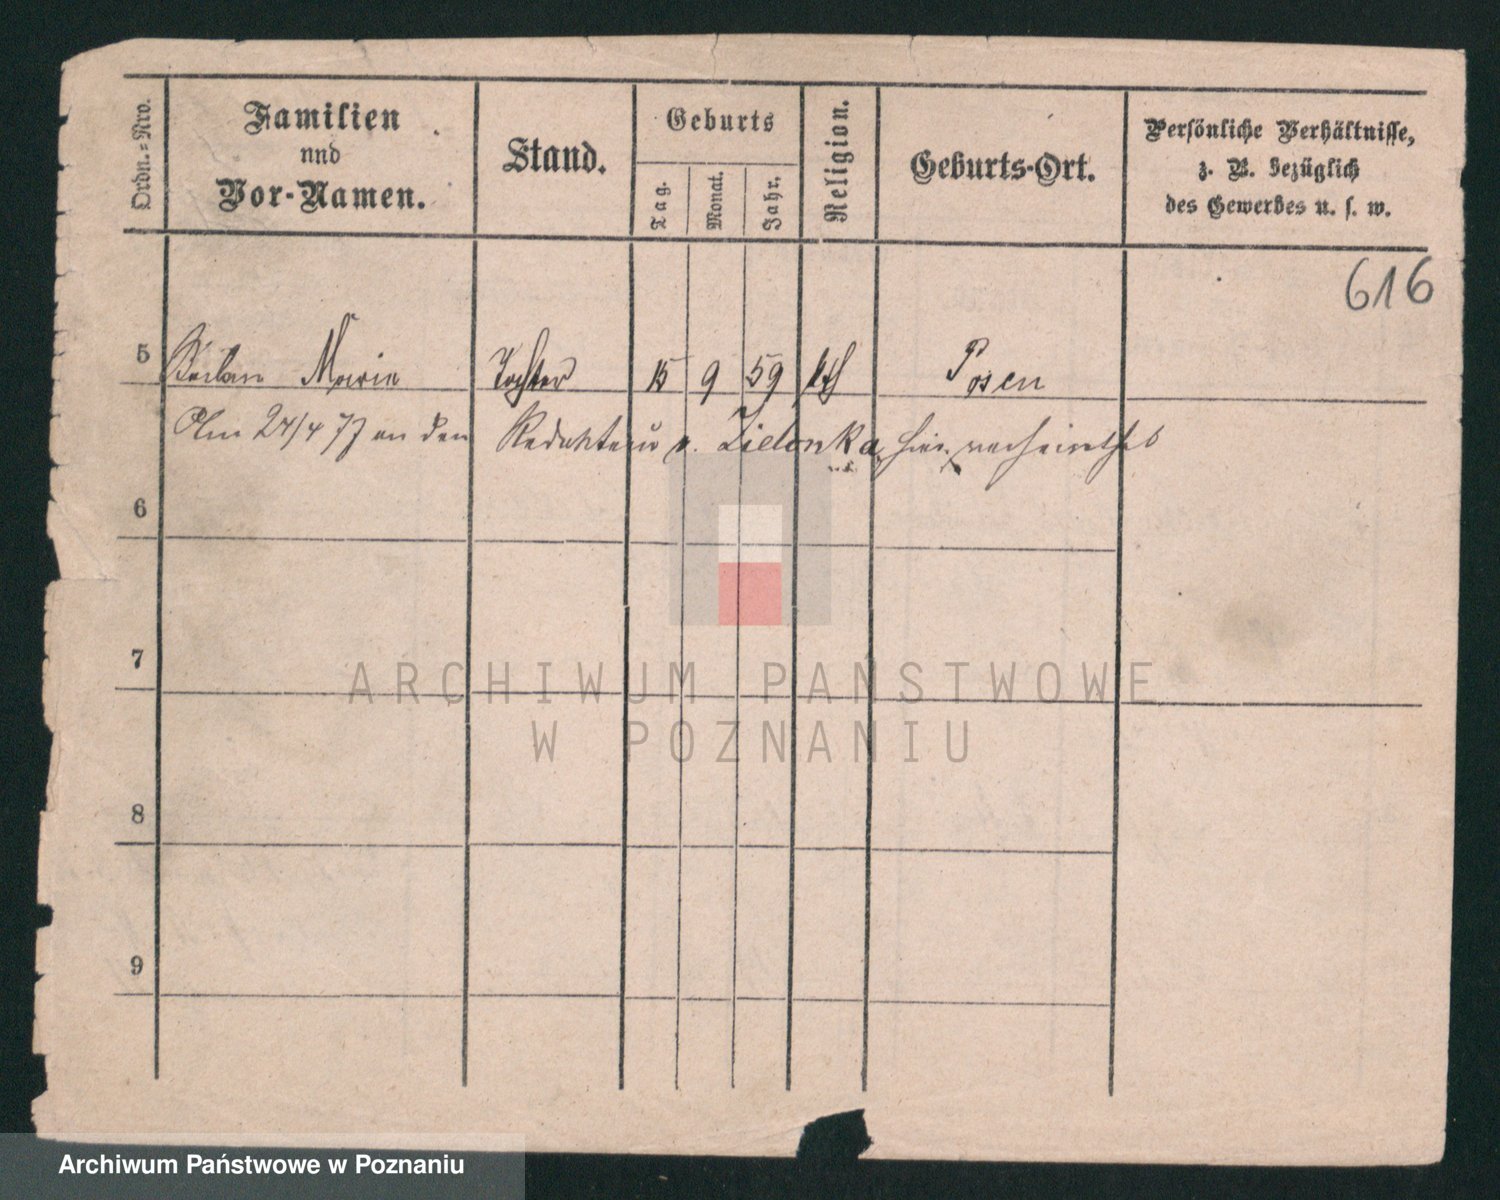 Ordn.=Nro.
Familien
nnd
Vor-Namen.
Stand.
Geburts
Tag.
Monat.
Jahr.
Religion.
Geburts-Ort.
Persönliche Verhältnisse,
z. B. bezüglich
des Gewerbes u. s. w.
616
5 Marie Tochter 15 9 59 kth Posen
Am 24/4 77 an den Redakteur v. Zielonka hier verheirathet
6
7
8
9
ARCHIWUM PAŃSTWOWE
W POZNANIU
Archiwum Państwowe w Poznaniu